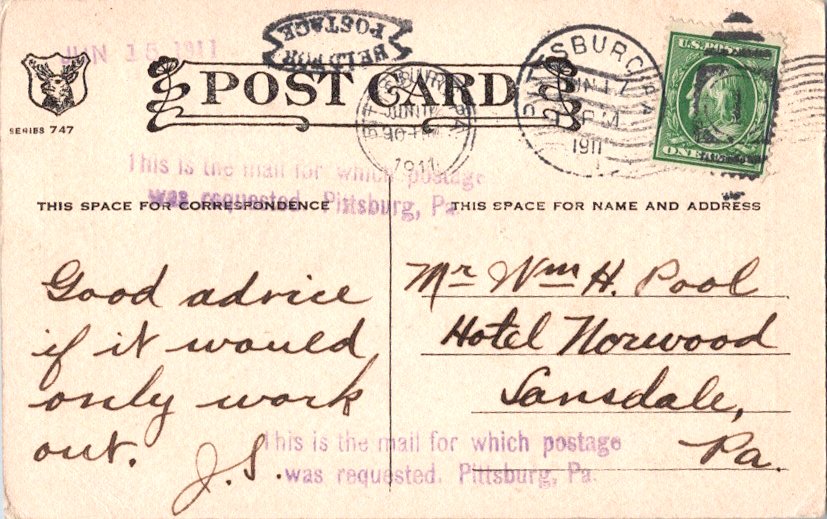 JUN 15 1911
HELD FOR
POSTAGE
POST CARD
SERIES 747
PITTSBURG, PA
JUN 17
1911
U.S. POST
ONE
This is the mail for which postage
was requested. Pittsburg, Pa.
THIS SPACE FOR CORRESPONDENCE
THIS SPACE FOR NAME AND ADDRESS
Good advice
if it would
only work
out.
J.S.
Mr Wm H. Pool
Hotel Norwood
Lansdale,
Pa.
This is the mail for which postage
was requested. Pittsburg, Pa.